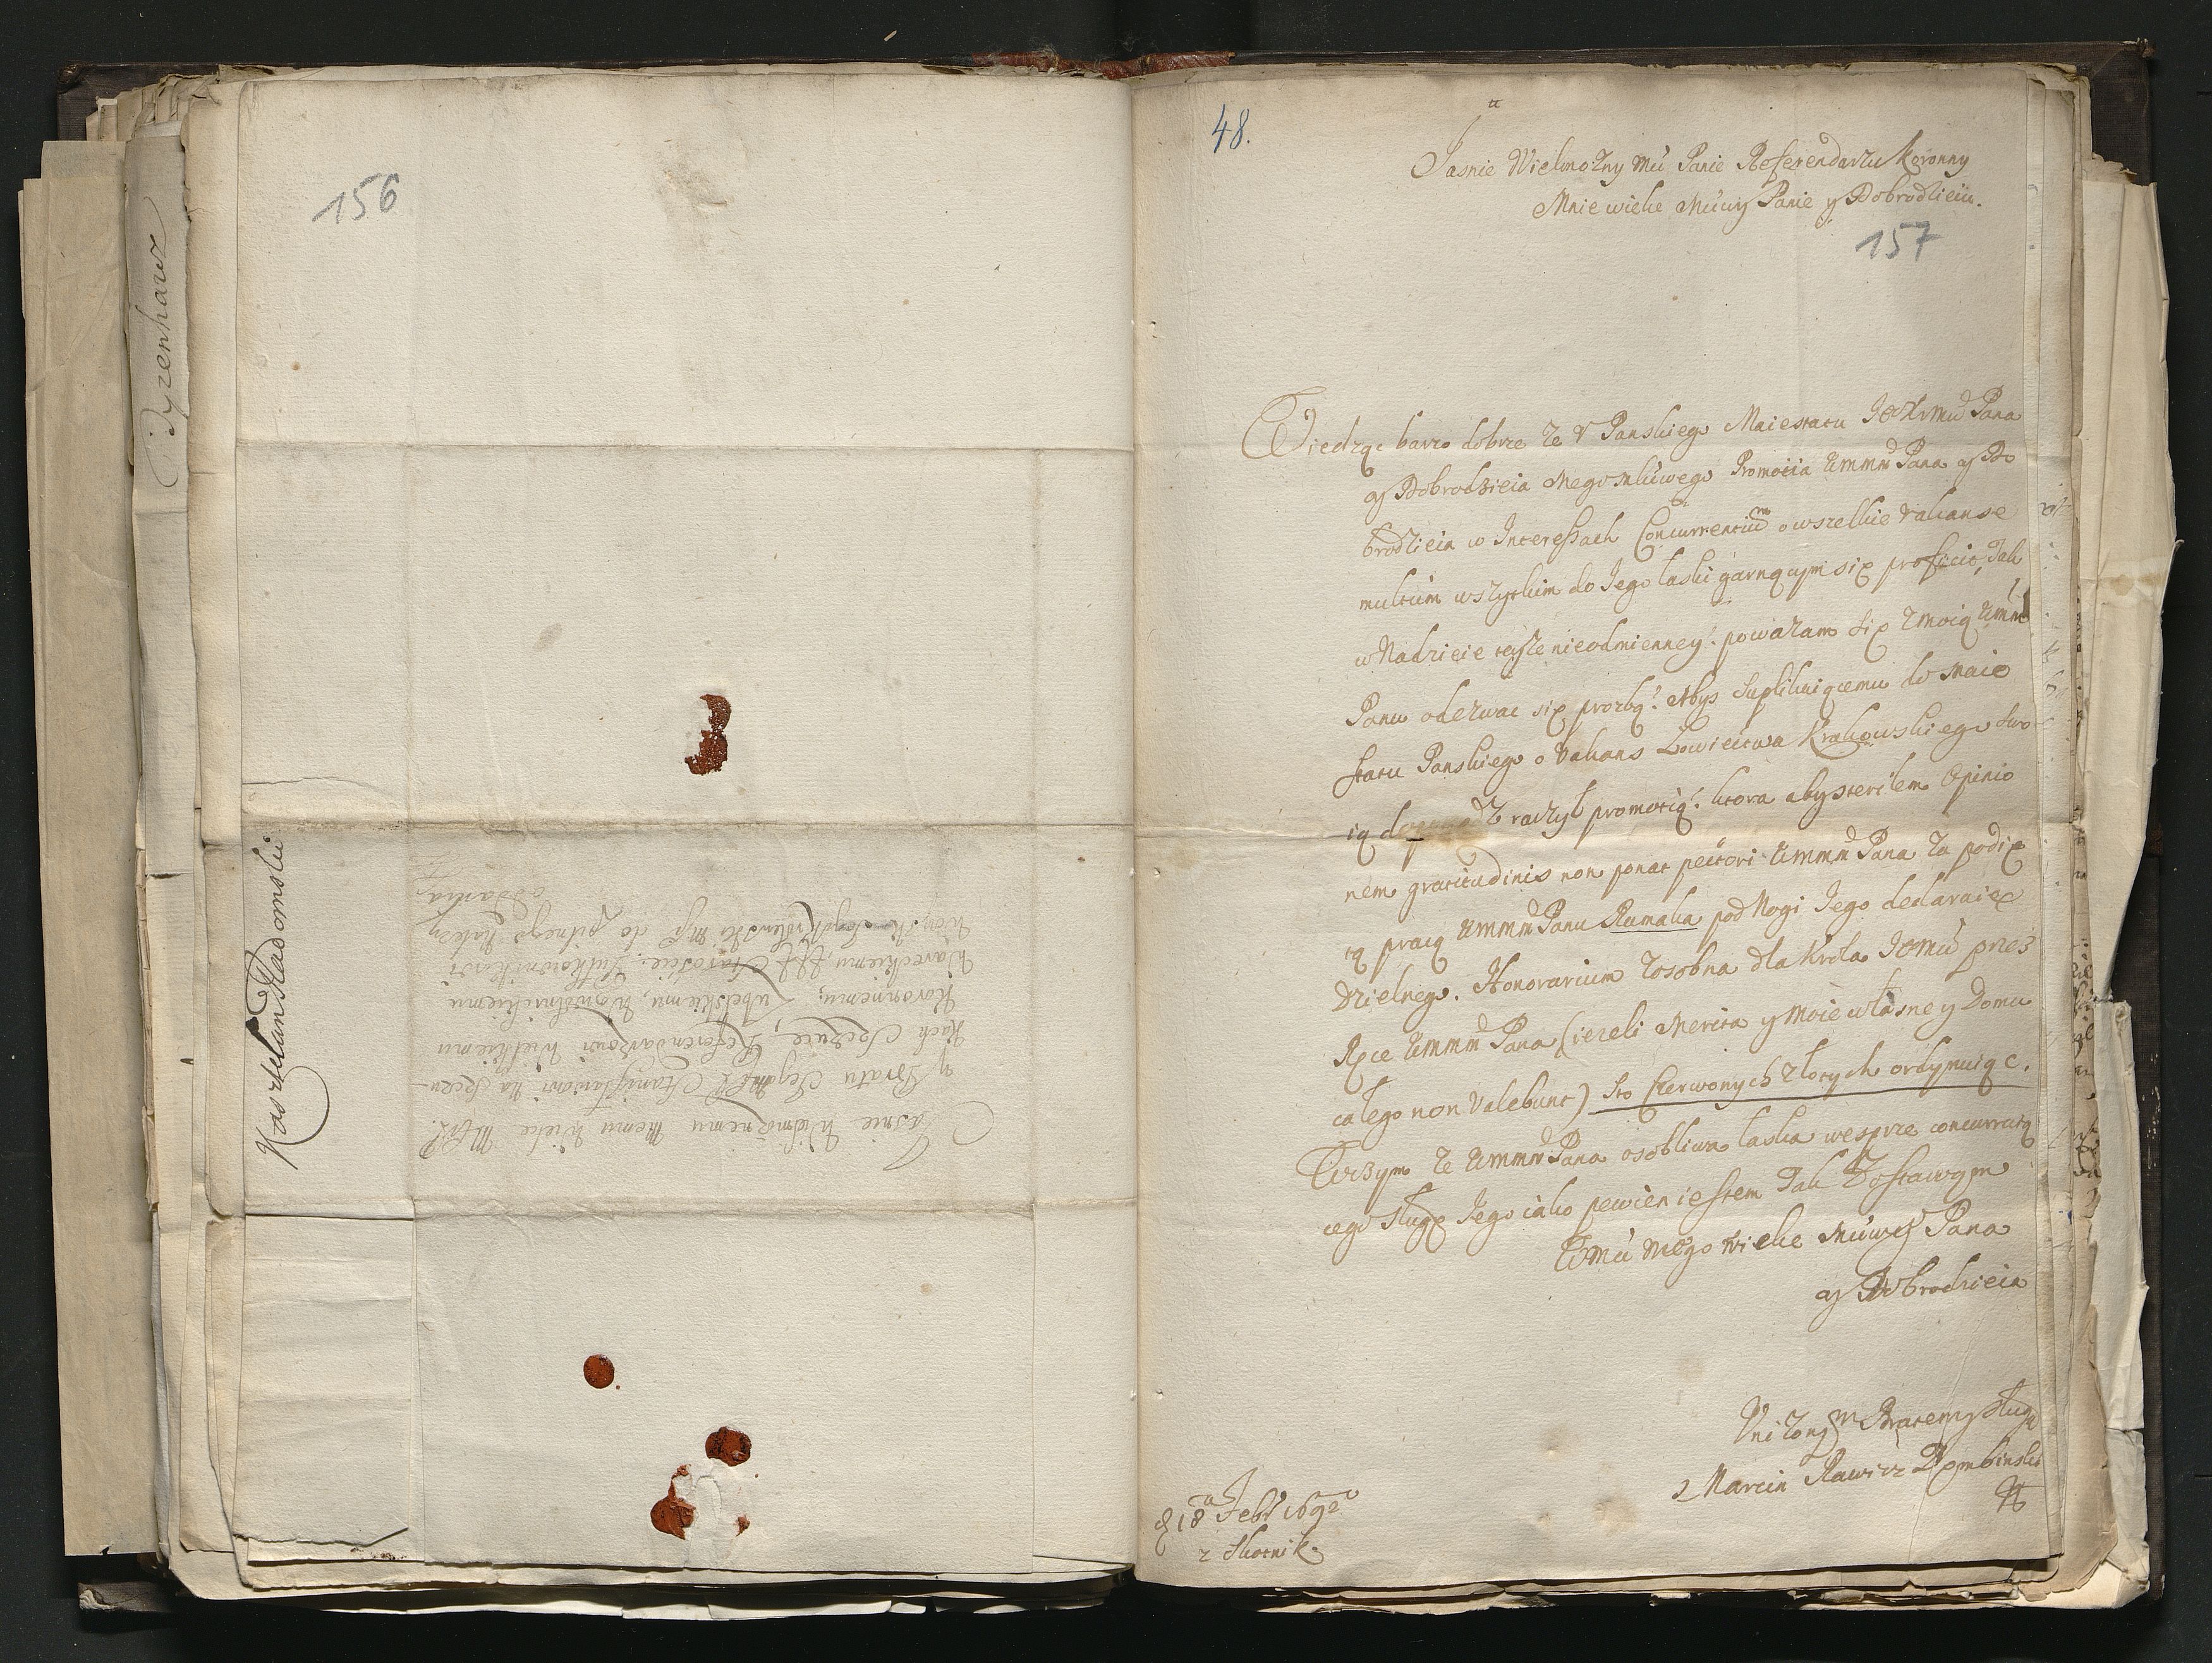 Tyzenhauz
156
Kasztelan Radomski
Jasnie Wielmożnemu Memu Wielce MPP.
y Bratu Jegoms Stanisławowi na Szczu
kach Szczuce, Referendarzowi Wielkiemu
Koronnemu, Lubelskiemu, Wąwolnickiemu
Wareckiemu, Staroscie,
do pilnego
oddania
48.
Jasnie Wielmożny Mći Panie Referendarzu Koronny
Mnie wielce Mćiwy Panie y Dobrodzieiu.
157
Wiedząc barzo dobrze ze v Panskiego Maiestatu JoKrMći Pana
y Dobrodzieia Mego Mściwego Promocia WmmM Pana y Do
brodzieia w Interessach Concurrentium o wszelkie Vakanse
multum wszytkim do Jego łaski garnącym się proficit, Jak
w Nadzieie teyze nieodmienney. powazam się z moią Wmm
Panu odezwac się prozbą. Abys Suplikuiącemu do Maie
statu Panskiego o Vakans Łowiectwa Krakowskiego Swo
ią raczył promotią. ktora aby sterilem Opinio
nem gratitudinis non ponat pectori WmmM Pana za podię
tą pracą WmmM Panu Rumaka pod Nogi Jego declaruię
Dzielnego. Honorarium zosobna dla Krola JoMći przez
Ręce WmmM Pana (iezeli Merita y Moie własne y Domu
całego non Valebunt) Sto Czerwonych złotych ordynuiąc.
Tuszym ze WmmM Pana osobliwa łaska wesprze concurruią
cego Sługę Jego iako pewien iestem Jak Zostawam
WMći Mego Wielce Mściwego Pana
y Dobrodzieia
Vnizonym Bratem y Sługą
Marcin Rawicz Dęmbinski
18 Febr 1692
z Skotnik.